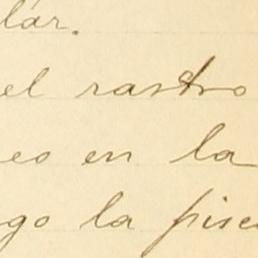 lar.
el rastro
eo en la
go la pisc